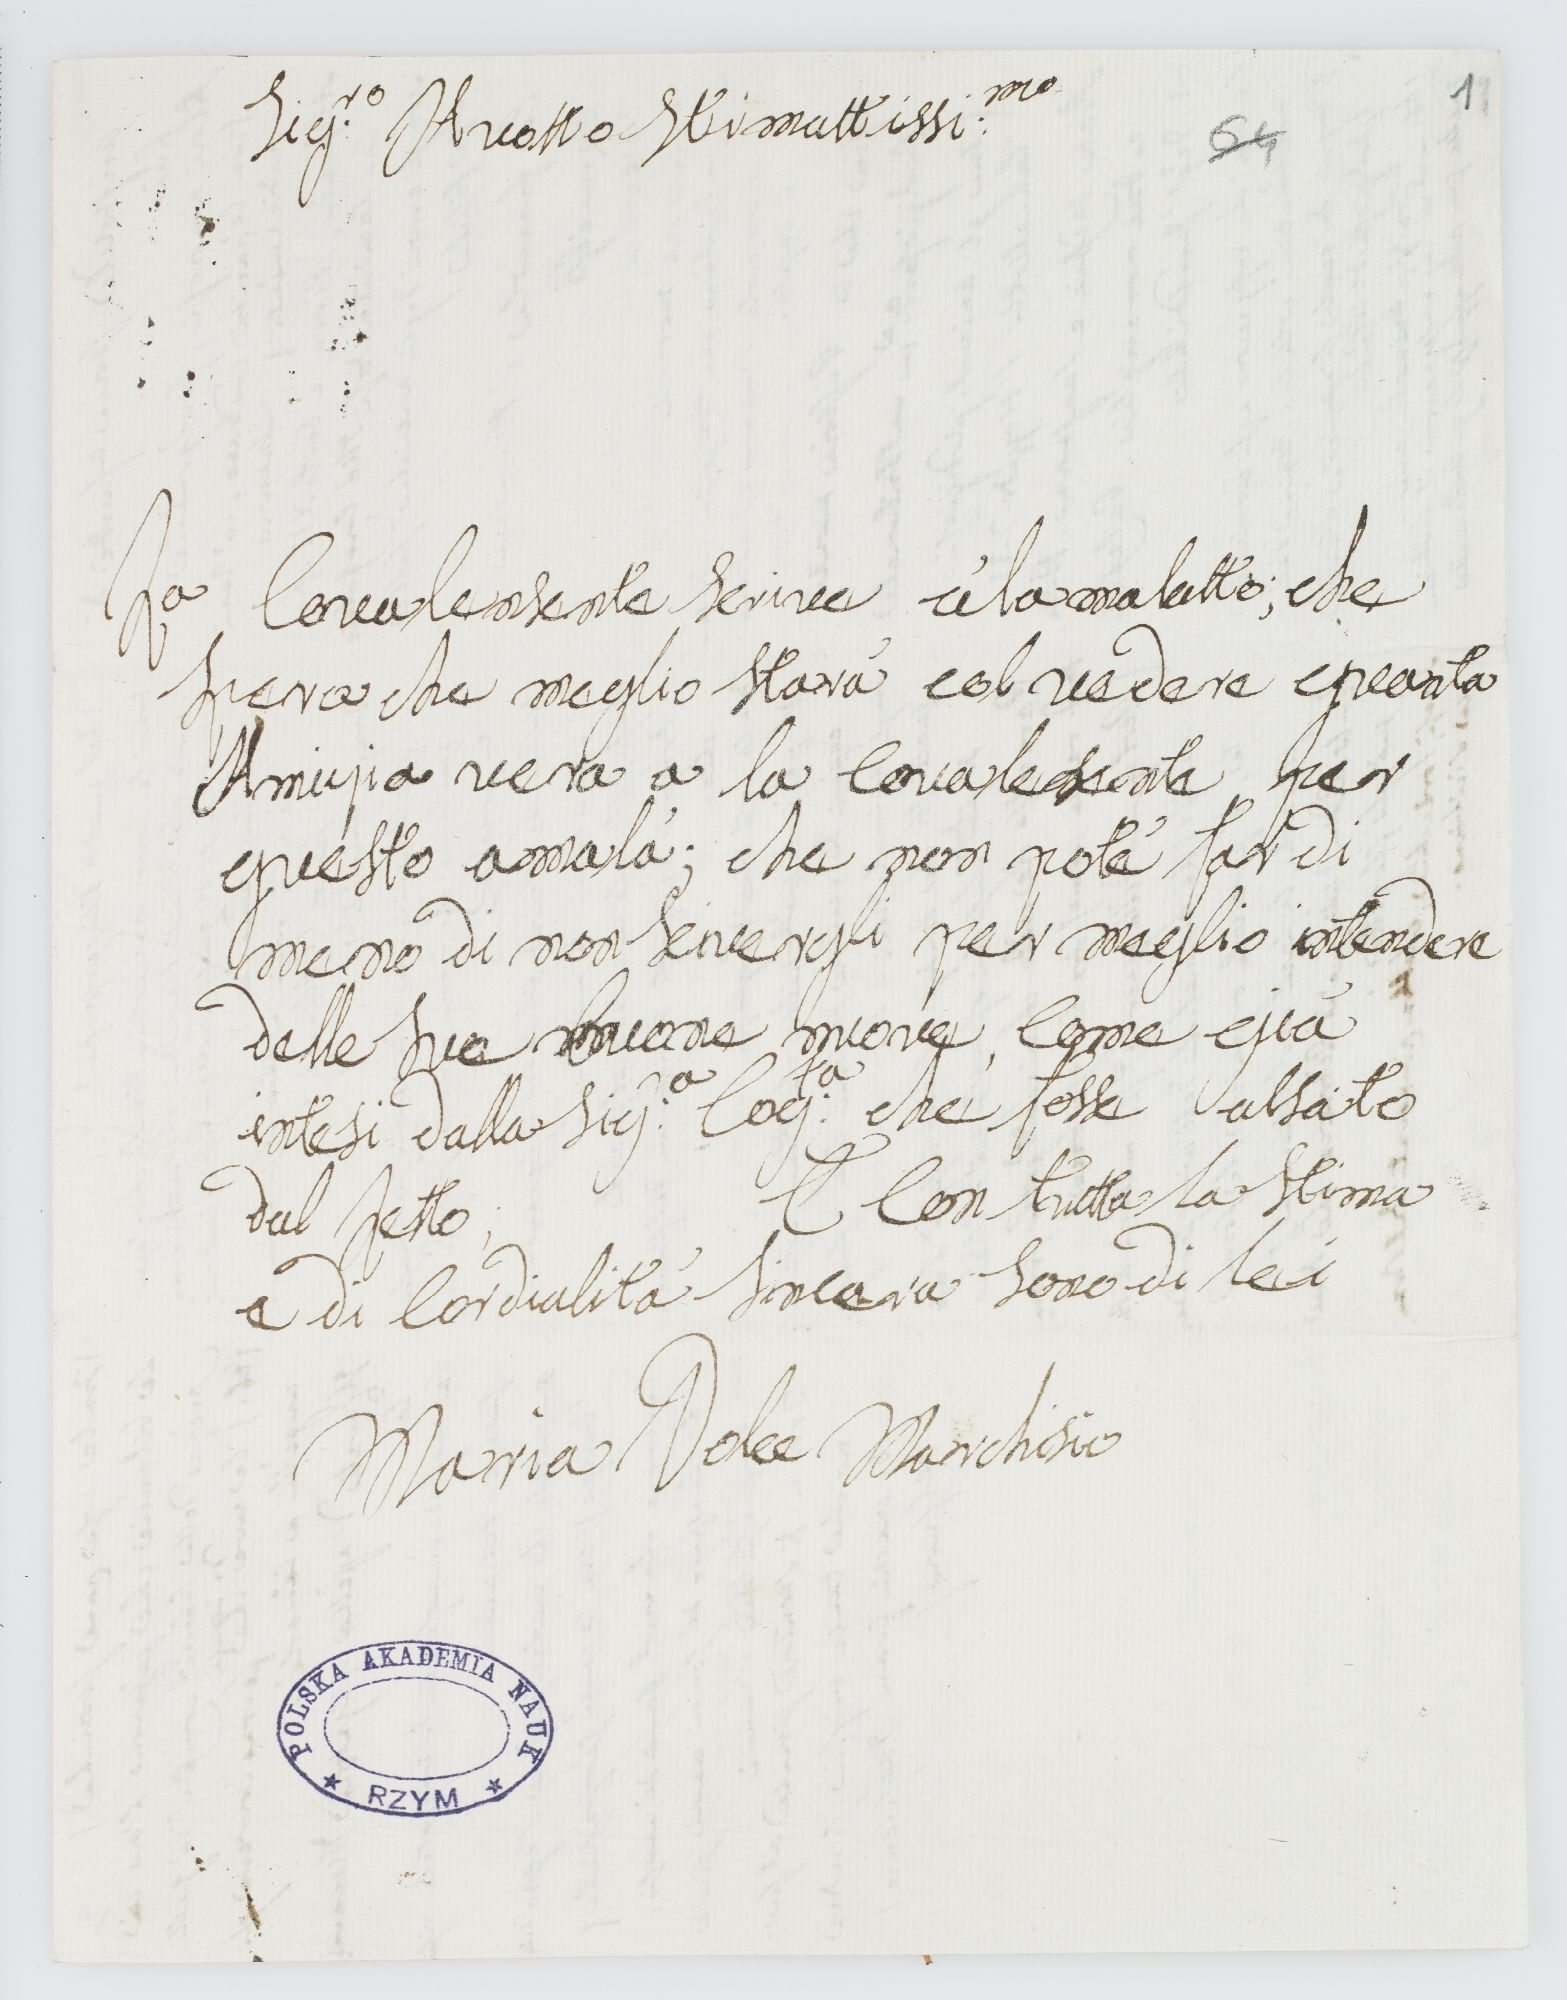 1
64
Sig.ro Avotto Stimattissi:mo
La Convalensente scrive à la malatto; che
spera che meglio starà col vedere quanta
Amicizia vera a la Convalesente per
questo amalà; che non poté far di
meno di non scivergli per meglio intendere
delle sue buone nuove, Come già
intesi dalla Sig.a Cog.ta che fosse alsato
dal letto; E Con tutta la stima
e di Cordialità sincera sono di lei
Maria Dolce Marchisio
POLSKA AKADEMIA NAUK
★ RZYM ★